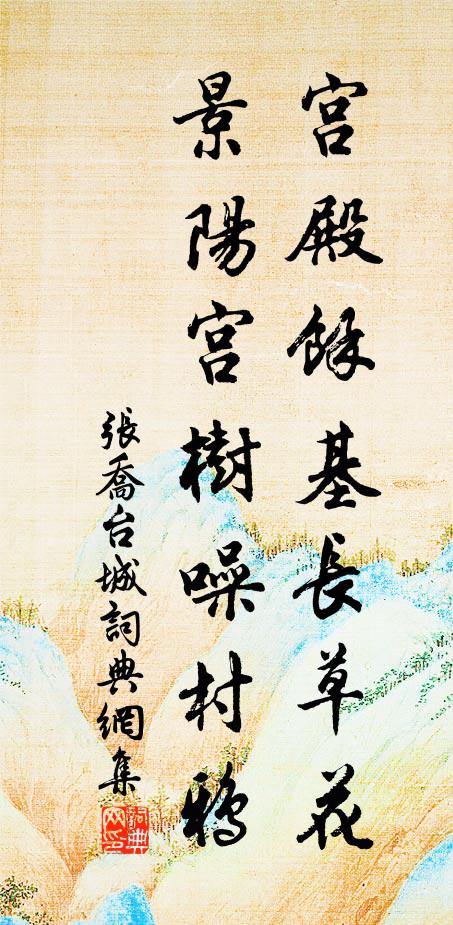 宫殿餘基長草花
景陽宫樹噪村鴉
張喬台城詞典網集